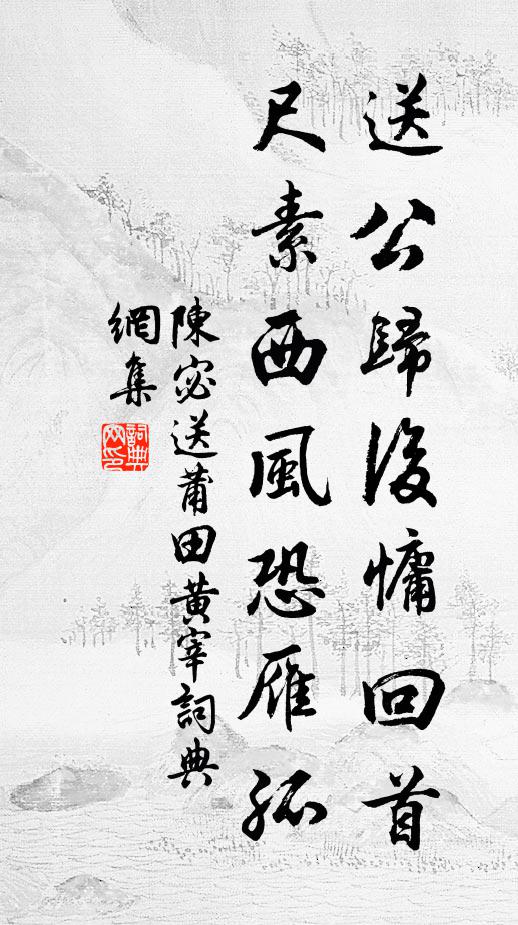 送公歸後慵回首
尺素西風恐雁孤
陳宓送莆田黃宰詞典
網集
詞典
网印